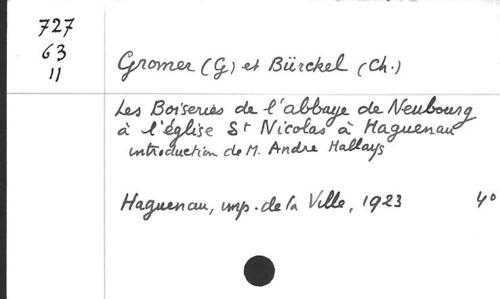 727
63
11
Gromer (G) et Bürckel (Ch.)
Les Boiseries de l'abbaye de Neubourg
à l'église St Nicolas à Haguenau
introduction de M. André Hallays
Haguenau, imp. de la Ville, 1923 4°